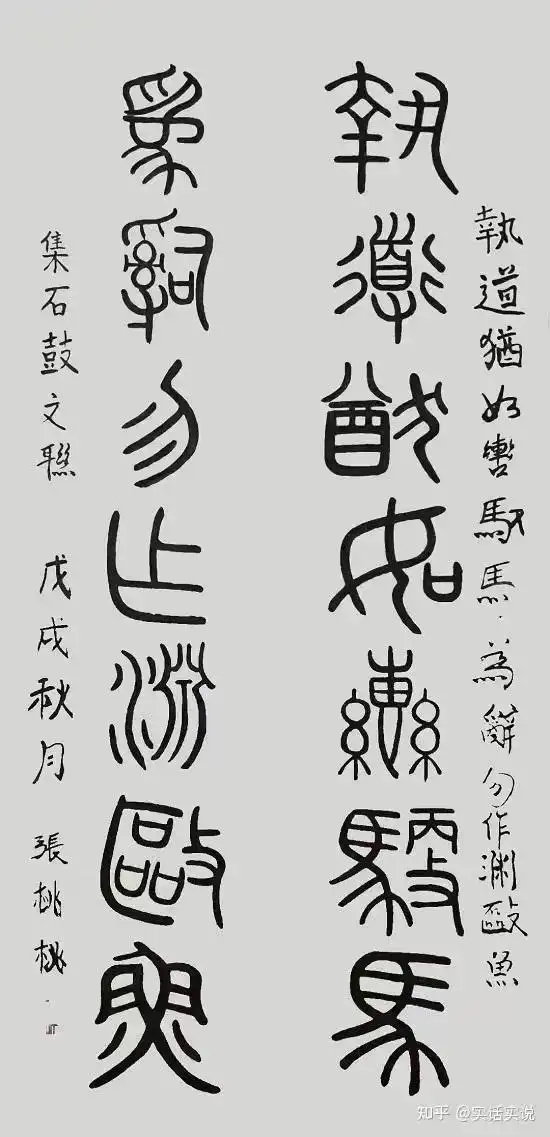 執道猶如轡馭馬.為辭勿作渊敺魚
執道猶如轡馭馬
為辭勿作淵敺魚
集石鼓文聯 戊戌秋月 張桃桃
知乎 @实话实说